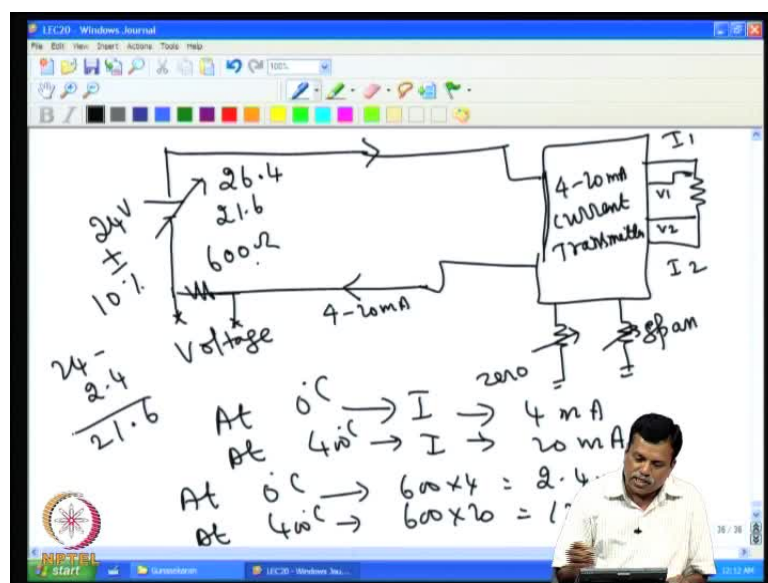 LEC20 - Windows Journal
File Edit View Insert Actions Tools Help
100%
B I
24V
±
10%
26.4
21.6
600Ω
Voltage
4-20mA
4-20mA
Current
Transmitter
I1
V1
V2
I2
zero
span
24 -
2.4
21.6
At 0°C → I → 4 mA
At 400°C → I → 20 mA
At 0°C → 600×4 = 2.4
At 400°C → 600×20 =
NPTEL
36 / 36
start
Gunasekaran
LEC20 - Windows Jou...
12:12 AM